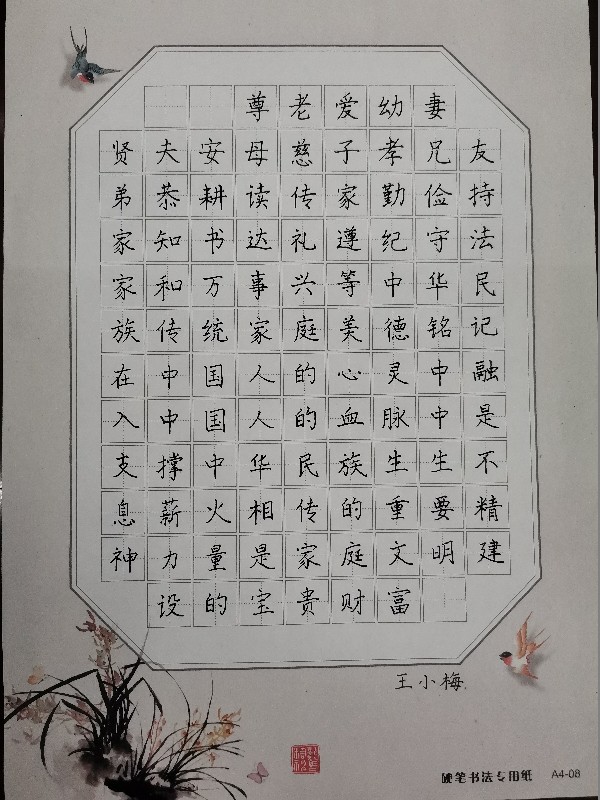 尊老爱幼妻
贤夫安母慈子孝兄友
弟恭耕读传家勤俭持
家知书达礼遵纪守法
家和万事兴等中华民
族传统家庭美德铭记
在中国人的心灵中融
入中国人的血脉中是
支撑中华民族生生不
息薪火相传的重要精
神力量是家庭文明建
设的宝贵财富
王小梅
硬笔书法专用纸 A4-08